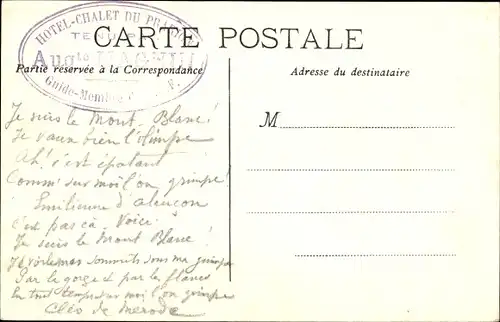 HOTEL-CHALET DU
TENU PAR
Augte
Guide-Membre
CARTE POSTALE
Partie réservée à la Correspondance
Adresse du destinataire
M
Je suis le Mont Blanc!
Je vaux bien l'olimpe
Ah! c'est épatant
Comm' sur moi l'on grimpe!
Emilienne d'alençon
c'est pas çà. Voici
Je suis le Mont Blanc!
sommits sous ma
Par la gorge et par les flancs
En tout temps sur moi l'on grimpe
Cléo de Merode